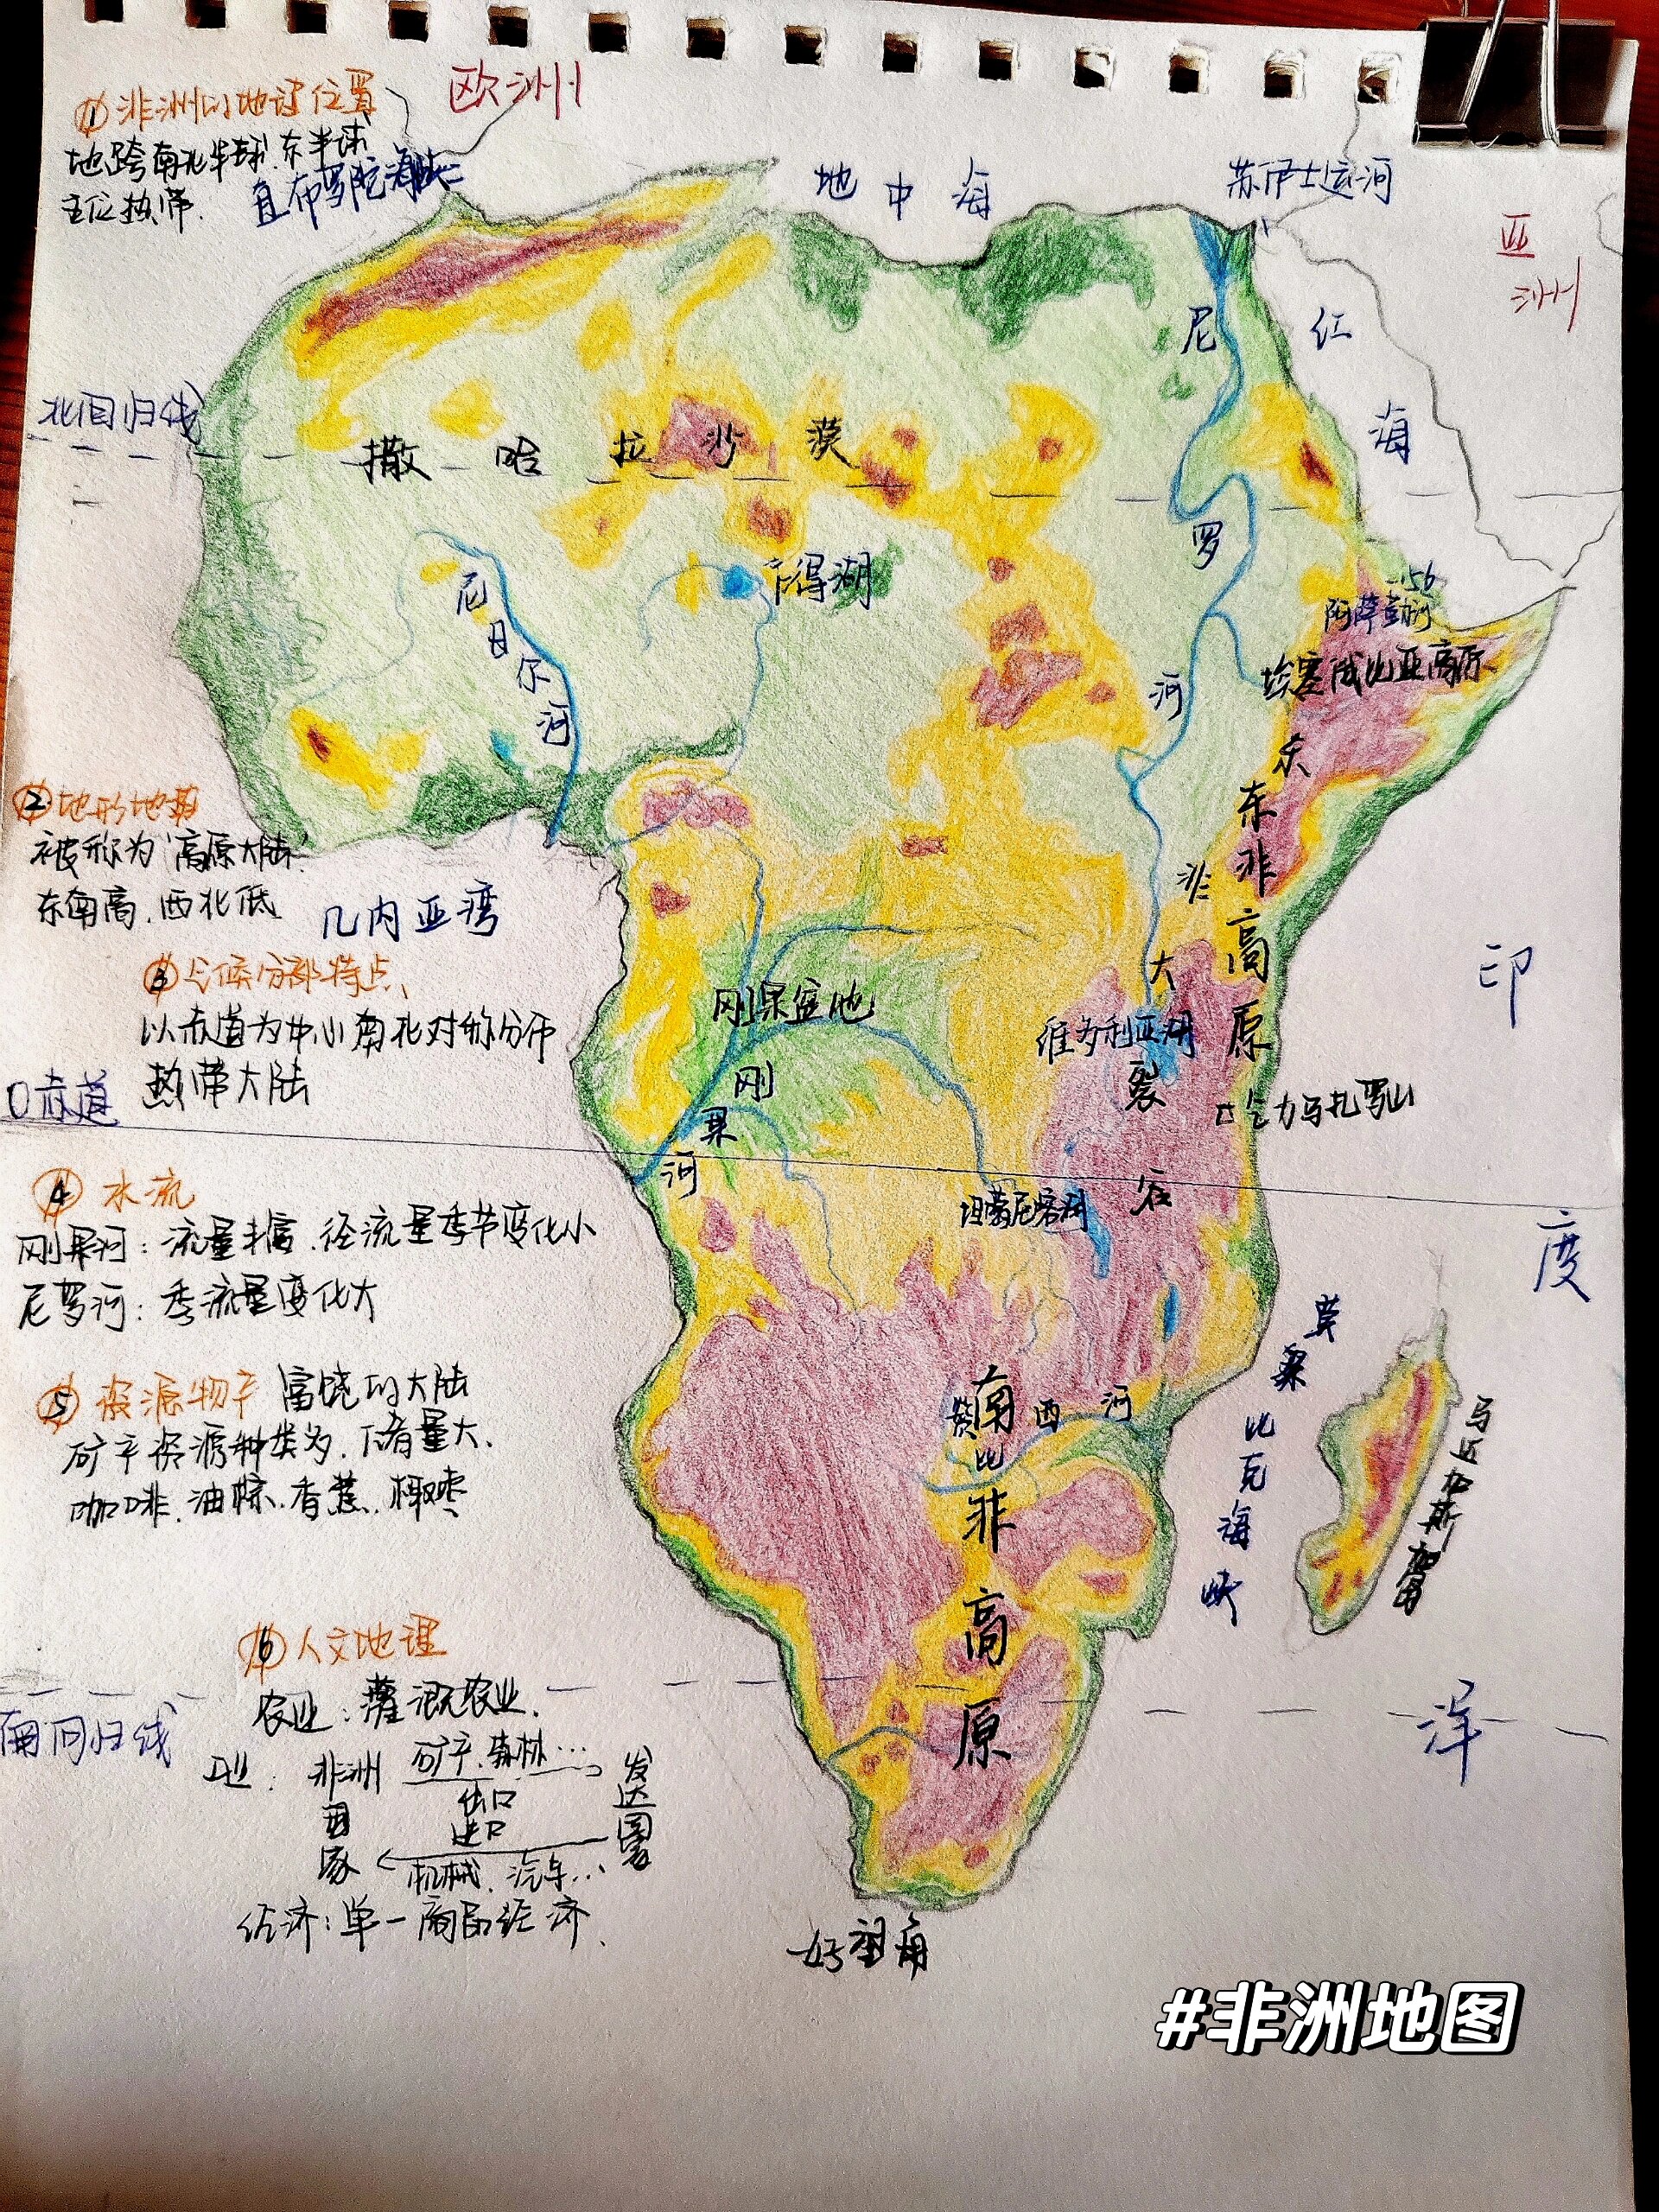 欧洲
① 非洲的地理位置
地跨南北半球、东半球
主位热带.
直布罗陀海峡
地中海
苏伊士运河
亚洲
红海
北回归线
撒哈拉沙漠
尼罗河
乍得湖
尼日尔河
-156
埃塞俄比亚高原
东非大裂谷
东非高原
② 地形地
被称为"高原大陆".
东南高、西北低
几内亚湾
③ 气候分部特点
以赤道为中心南北对称分布
热带大陆
刚果盆地
刚果河
维多利亚湖
乞力马扎罗山
印度洋
0赤道
④ 水流
刚果河:流量丰富、径流量季节变化小
尼罗河:季流量变化大
坦葛尼喀湖
⑤ 资源物产 富饶的大陆
矿产资源种类多、贮量大、
咖啡、油棕、香蕉、椰枣
赞比西河
南非高原
莫桑比克海峡
马达加斯加
⑥ 人文地理
农业:灌溉农业.
工业:非洲国家 矿产、森林… 发达国家
出口
进口
机械、汽车…
经济:单一商品经济、
南回归线
好望角
#非洲地图